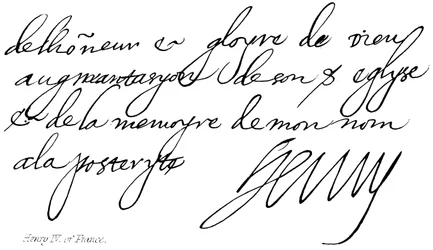 delhoñeur & gloyre de dieu
augmantasyon de son & eglyse
& de la memoyre de mon nom
a la posteryte
Henry
Henry IV. of France.